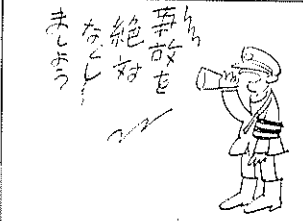 事故を
絶対
なくし
ましょう